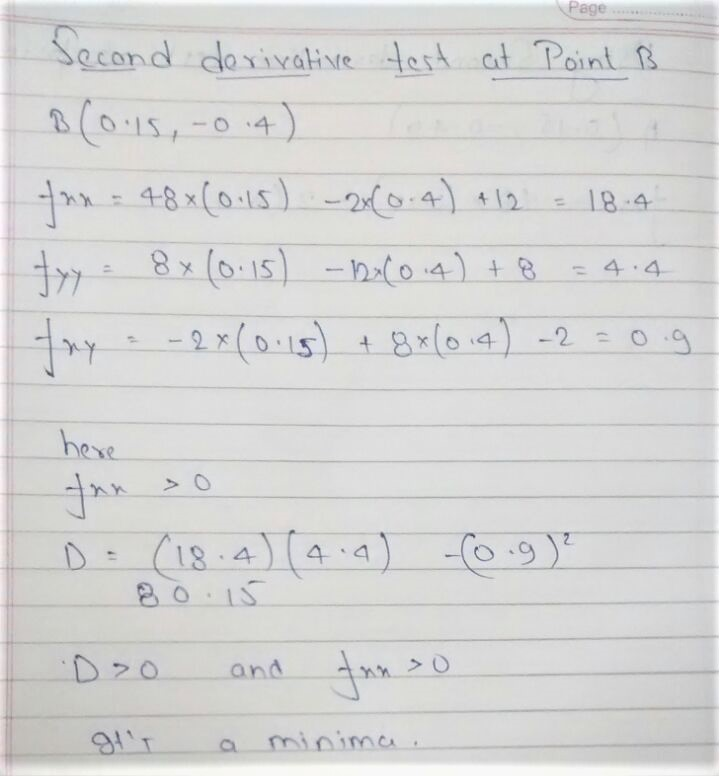 Page
Second derivative test at Point B
B(0.15, -0.4)
fxx = 48×(0.15) -2×(0.4) +12 = 18.4
fyy = 8×(0.15) -12×(0.4) + 8 = 4.4
fxy = -2×(0.15) + 8×(0.4) -2 = 0.9
here
fxx > 0
D = (18.4)(4.4) -(0.9)²
80.15
D>0 and fxx >0
It's a minima.